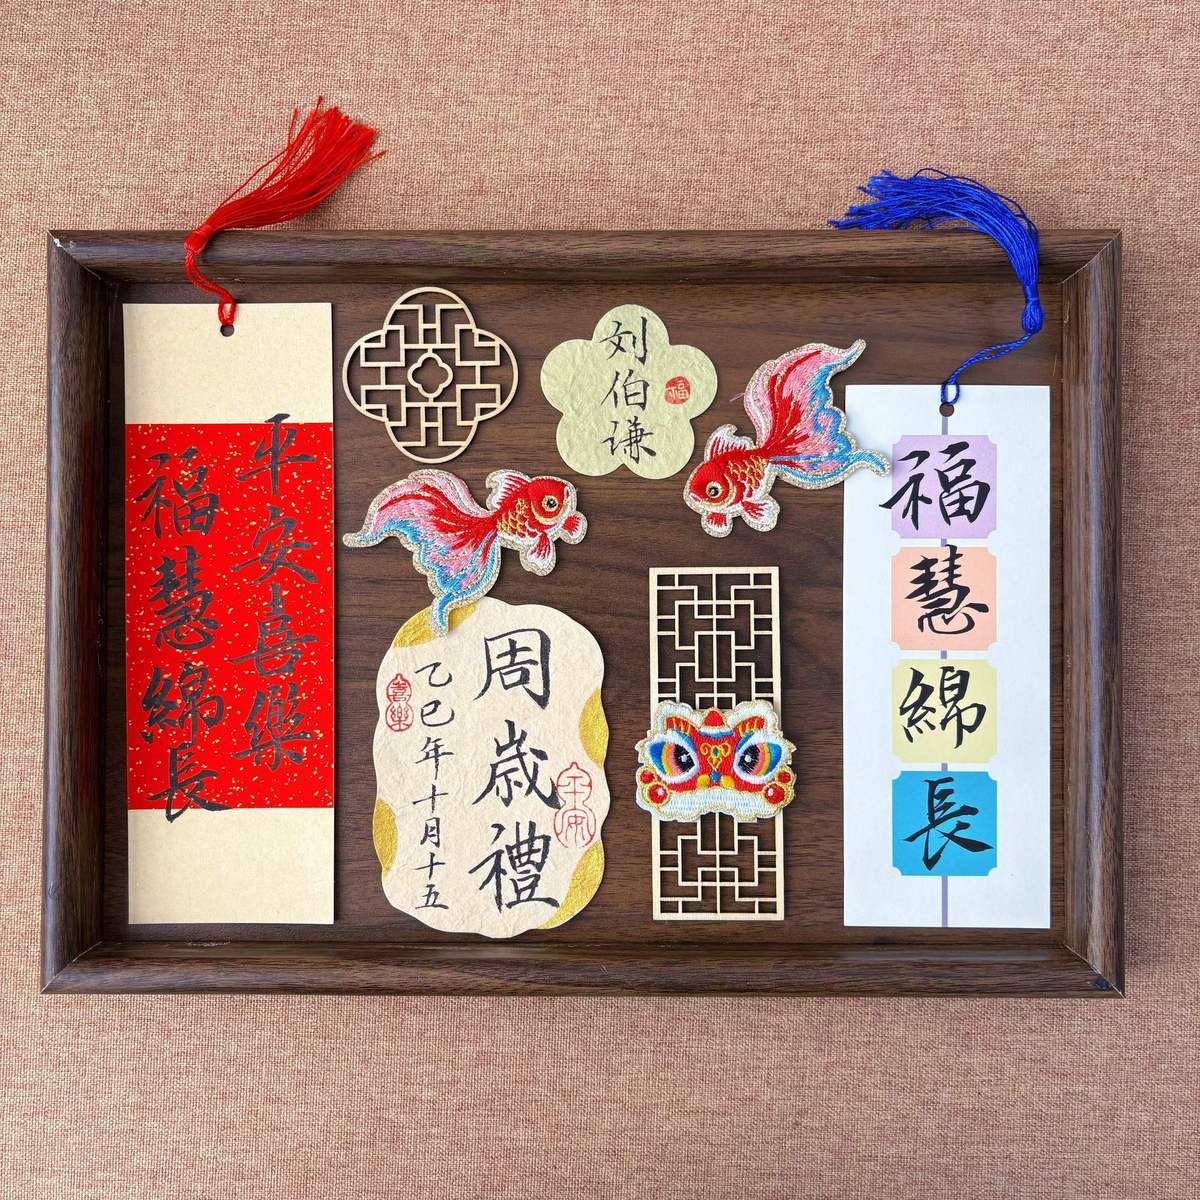 平安喜樂
福慧綿長
刘伯谦
福
周歲禮
平安
乙巳年十月十五
喜樂
福
慧
綿
長